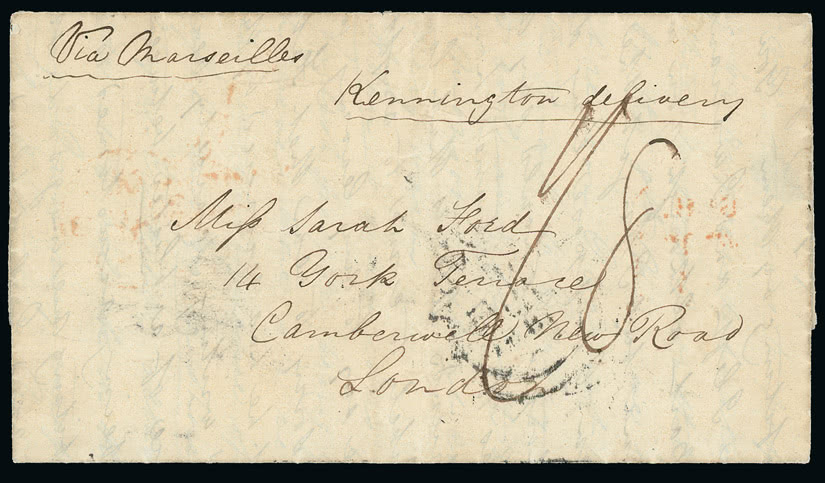 Via Marseilles
Kennington delivery
Miſs Sarah Ford
14 York Terrace
Camberwell New Road
London